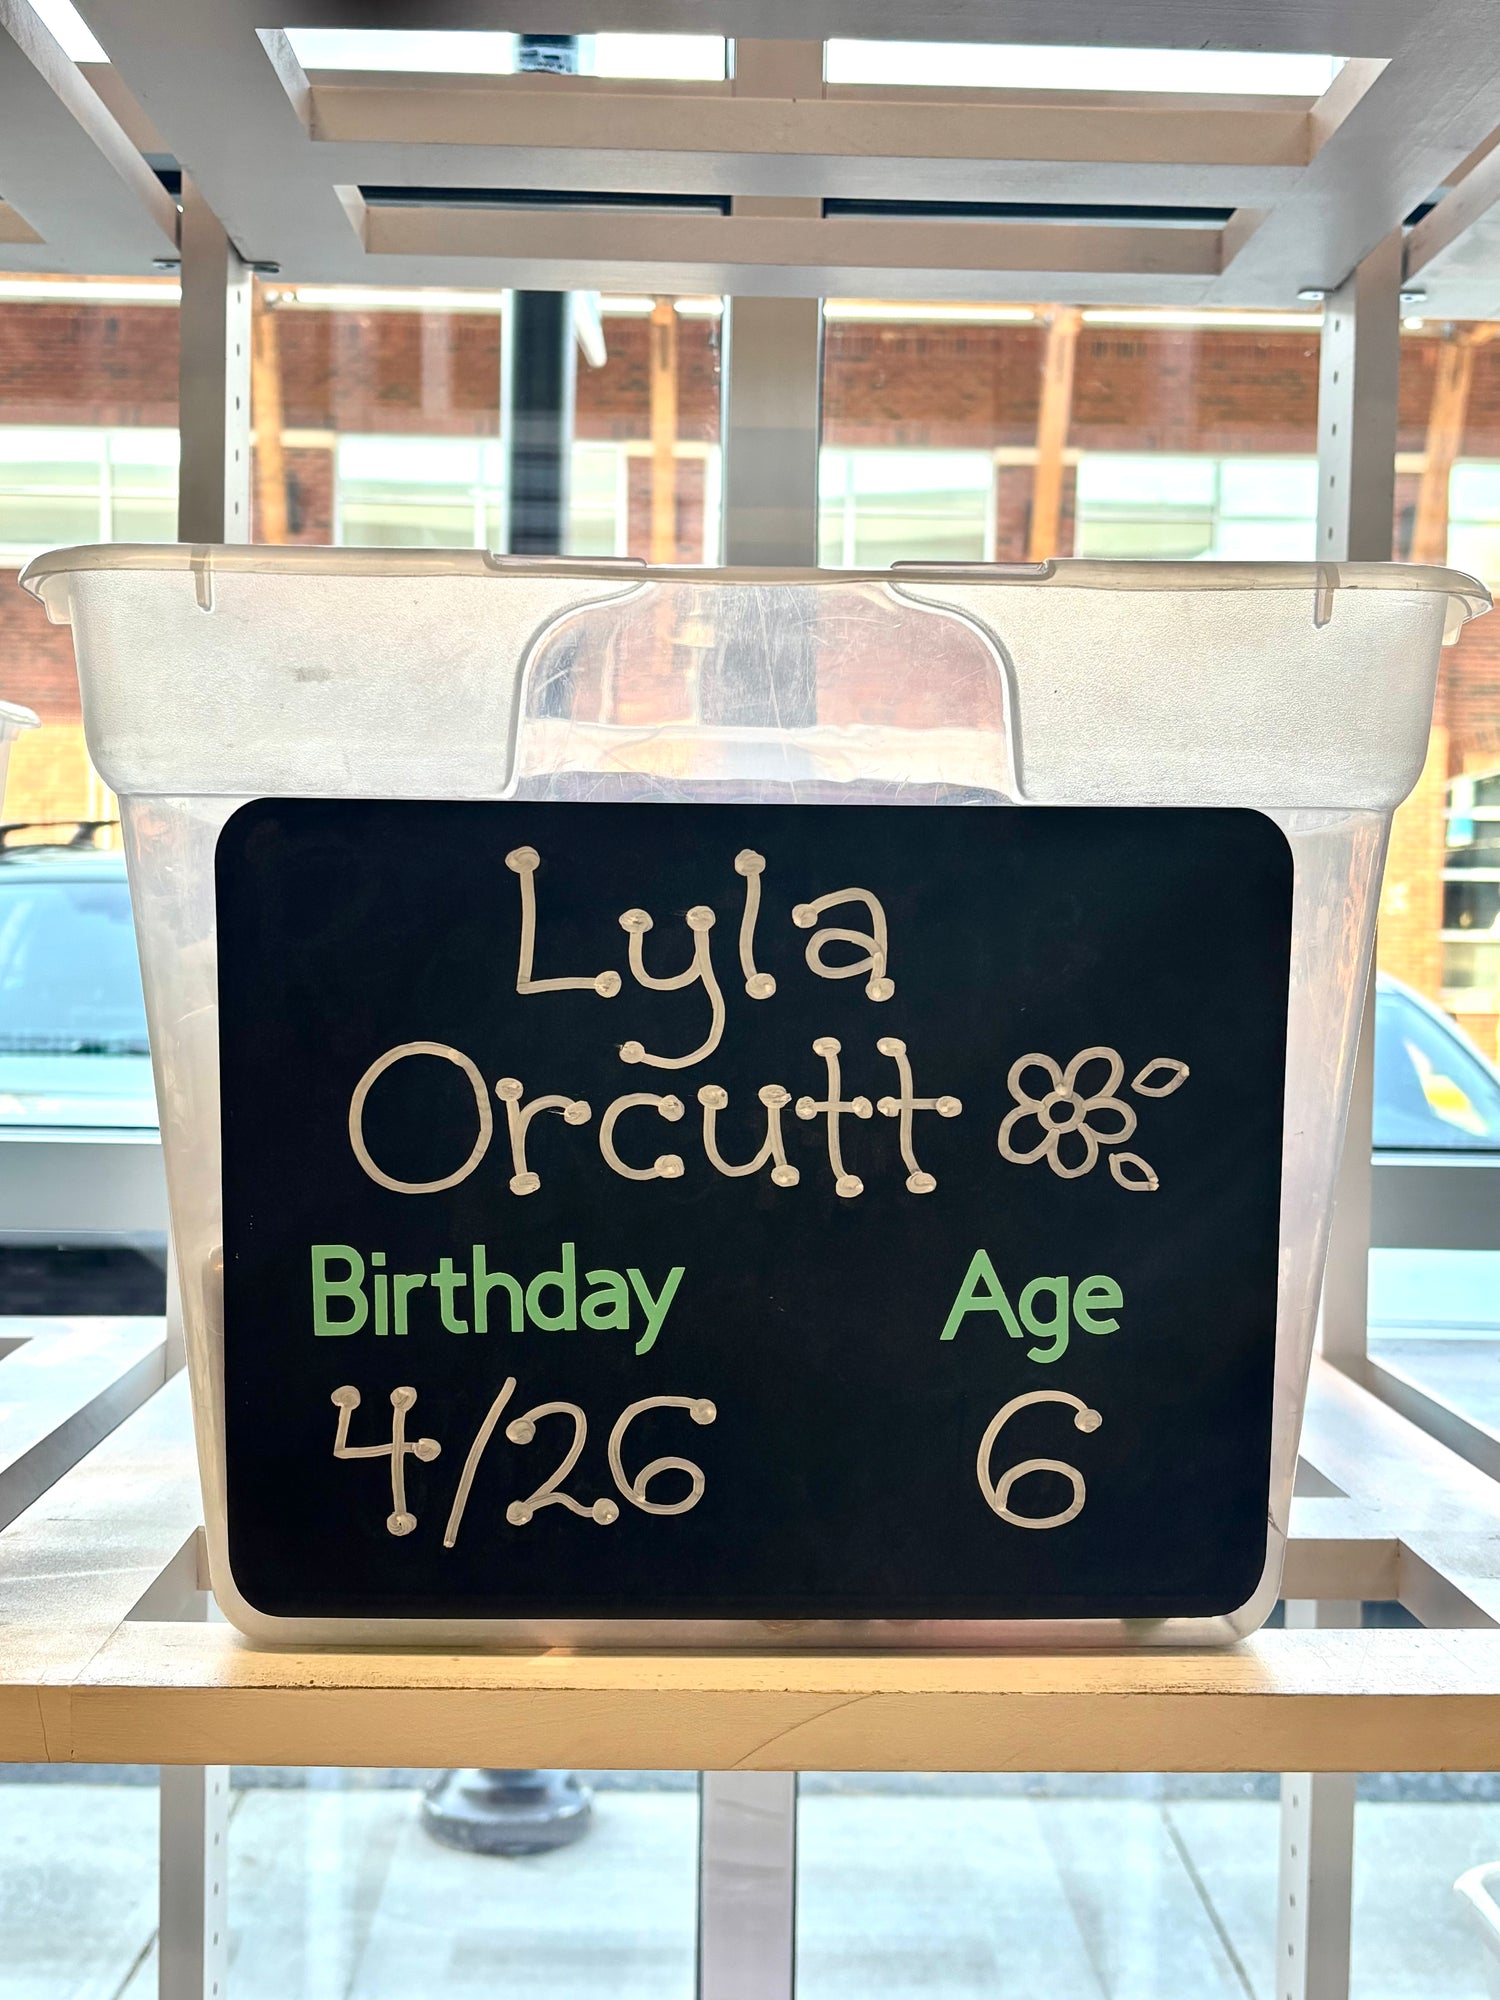 Lyla
Orcutt
Birthday Age
4/26 6